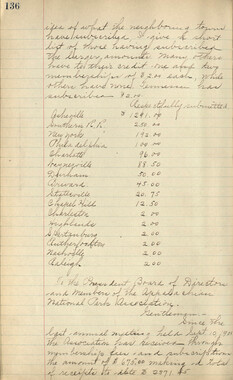 136
idea of what the neighboring towns
have subscribed. I give a short
list of those having subscribed
the larger amounts. Many others
have to their credit one and two
memberships of $2.00 each while
others have none. Tennessee has
subscribed $2.00
Respectfully submitted
Asheville $1291.04
Southern R.R. 250.00
New York 192.00
Philadelphia 100.00
Charlotte 96.00
Waynesville 88.50
Durham 50.00
Concord 45.00
Statesville 20.75
Chapel Hill 12.50
Charleston 2.00
Highlands 2.00
Spartanburg 2.00
Rutherfordton 2.00
Nashville 2.00
Raleigh 2.00
To the President Board of Directors
and Members of the Appalachian
National Park Association.
Gentlemen:
Since the
last annual meeting held Sept. 12, 
the Association has received through
membership fees and subscriptions
the amount of $675.00 making a total
of receipts to date $2091.85